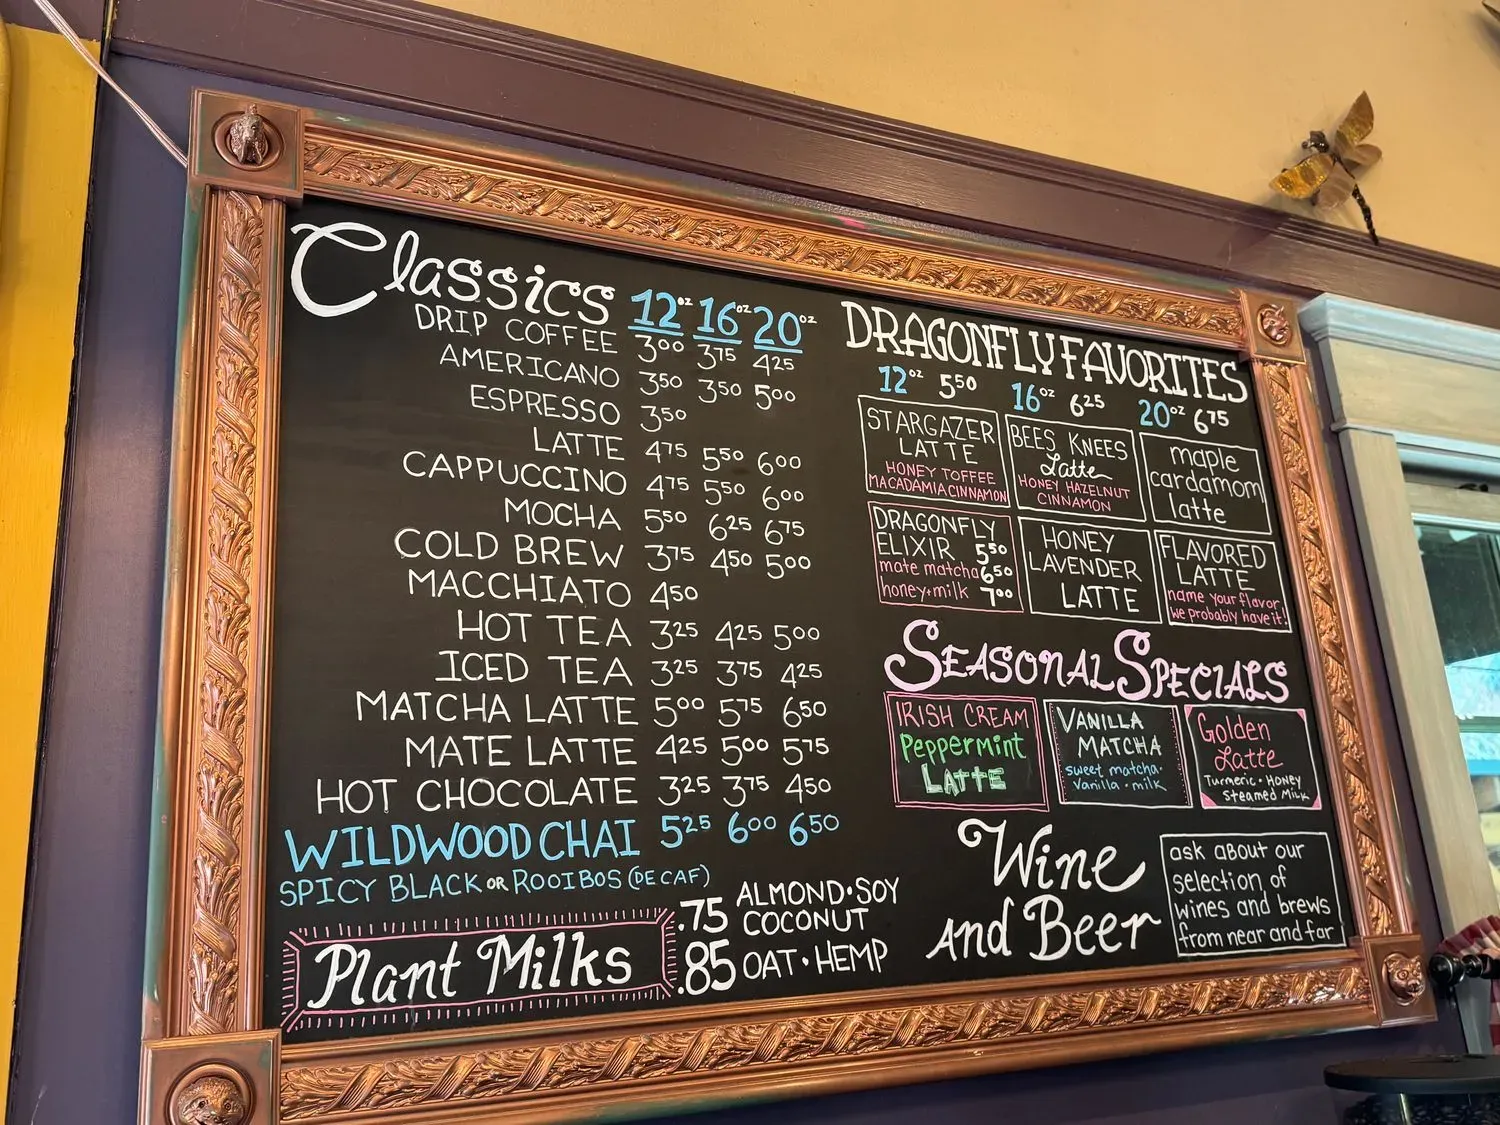 Classics 12oz 16oz 20oz
DRIP COFFEE 3.00 3.75 4.25
AMERICANO 3.50 3.50 5.00
ESPRESSO 3.50
LATTE 4.75 5.50 6.00
CAPPUCCINO 4.75 5.50 6.00
MOCHA 5.50 6.25 6.75
COLD BREW 3.75 4.50 5.00
MACCHIATO 4.50
HOT TEA 3.25 4.25 5.00
ICED TEA 3.25 3.75 4.25
MATCHA LATTE 5.00 5.75 6.50
MATE LATTE 4.25 5.00 5.75
HOT CHOCOLATE 3.25 3.75 4.50
WILDWOOD CHAI 5.25 6.00 6.50
SPICY BLACK OR ROOIBOS (DECAF)
Plant Milks
.75 ALMOND • SOY
COCONUT
.85 OAT • HEMP
DRAGONFLY FAVORITES
12oz 5.50 16oz 6.25 20oz 6.75
STARGAZER
LATTE
HONEY TOFFEE
MACADAMIA CINNAMON
BEES KNEES
Latte
HONEY HAZELNUT
CINNAMON
maple
cardamom
latte
DRAGONFLY
ELIXIR 5.50
mate matcha 6.50
honey • milk 7.00
HONEY
LAVENDER
LATTE
FLAVORED
LATTE
name your flavor
we probably have it!
SEASONAL SPECIALS
IRISH CREAM
Peppermint
LATTE
VANILLA
MATCHA
sweet matcha •
vanilla • milk
Golden
Latte
Turmeric • Honey
Steamed Milk
Wine
And Beer
ask about our
selection of
wines and brews
from near and far